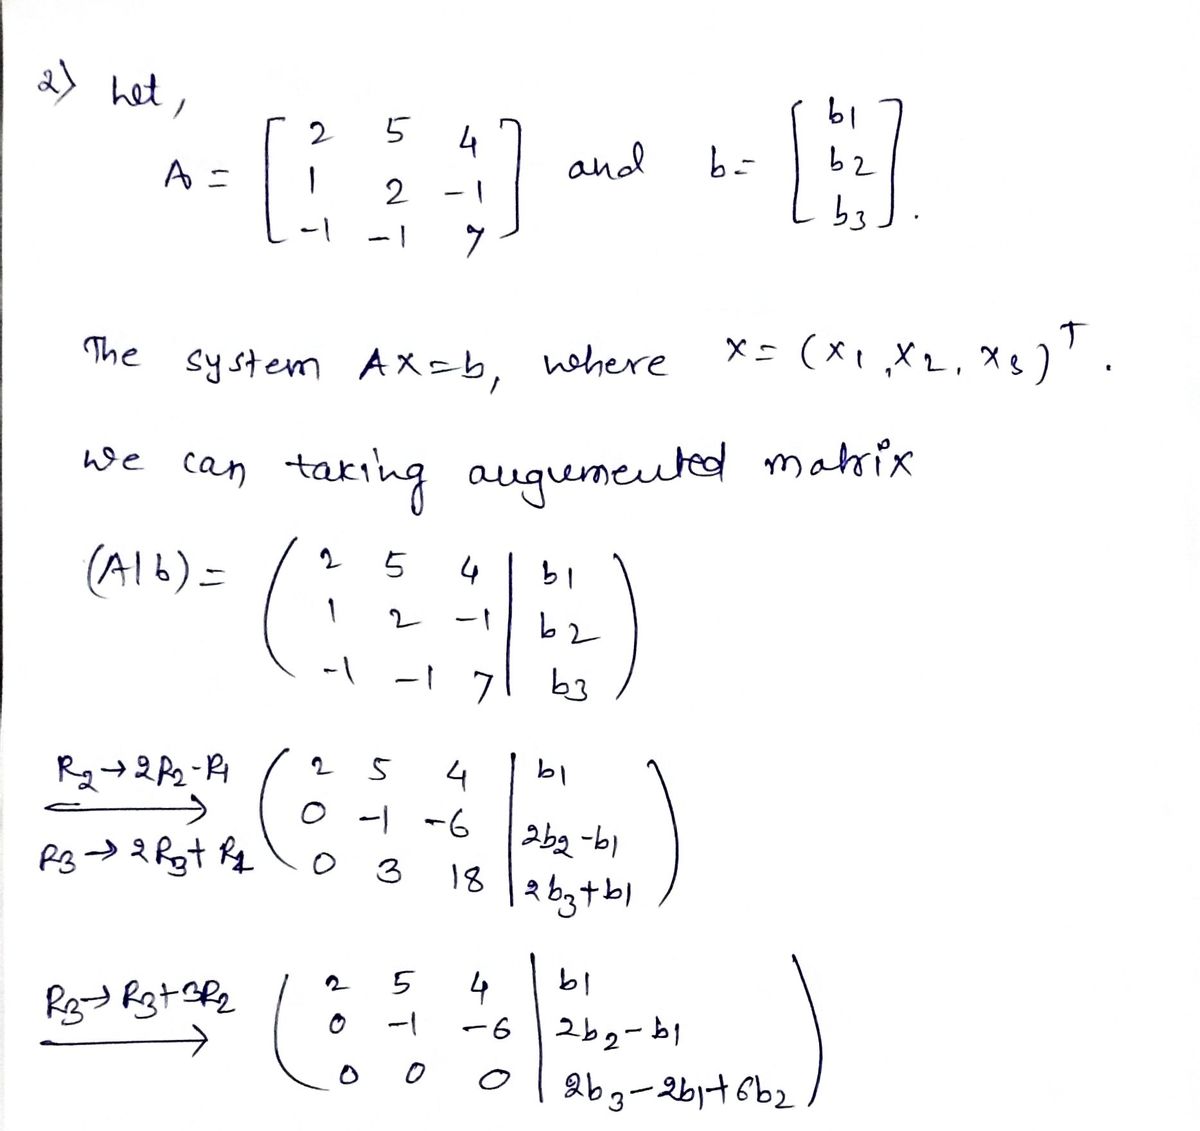 2) Let,
A = [ 2 5 4 ; 1 2 -1 ; -1 -1 7 ] and b = [ b1 ; b2 ; b3 ].
The system AX=b, where X = (X1, X2, X3)^T.
we can taking augumented matrix
(A|b) = ( 2 5 4 | b1 ; 1 2 -1 | b2 ; -1 -1 7 | b3 )
R2→2R2-R1
R3→2R3+R1
( 2 5 4 | b1 ; 0 -1 -6 | 2b2-b1 ; 0 3 18 | 2b3+b1 )
R3→R3+3R2
( 2 5 4 | b1 ; 0 -1 -6 | 2b2-b1 ; 0 0 0 | 2b3-2b1+6b2 )